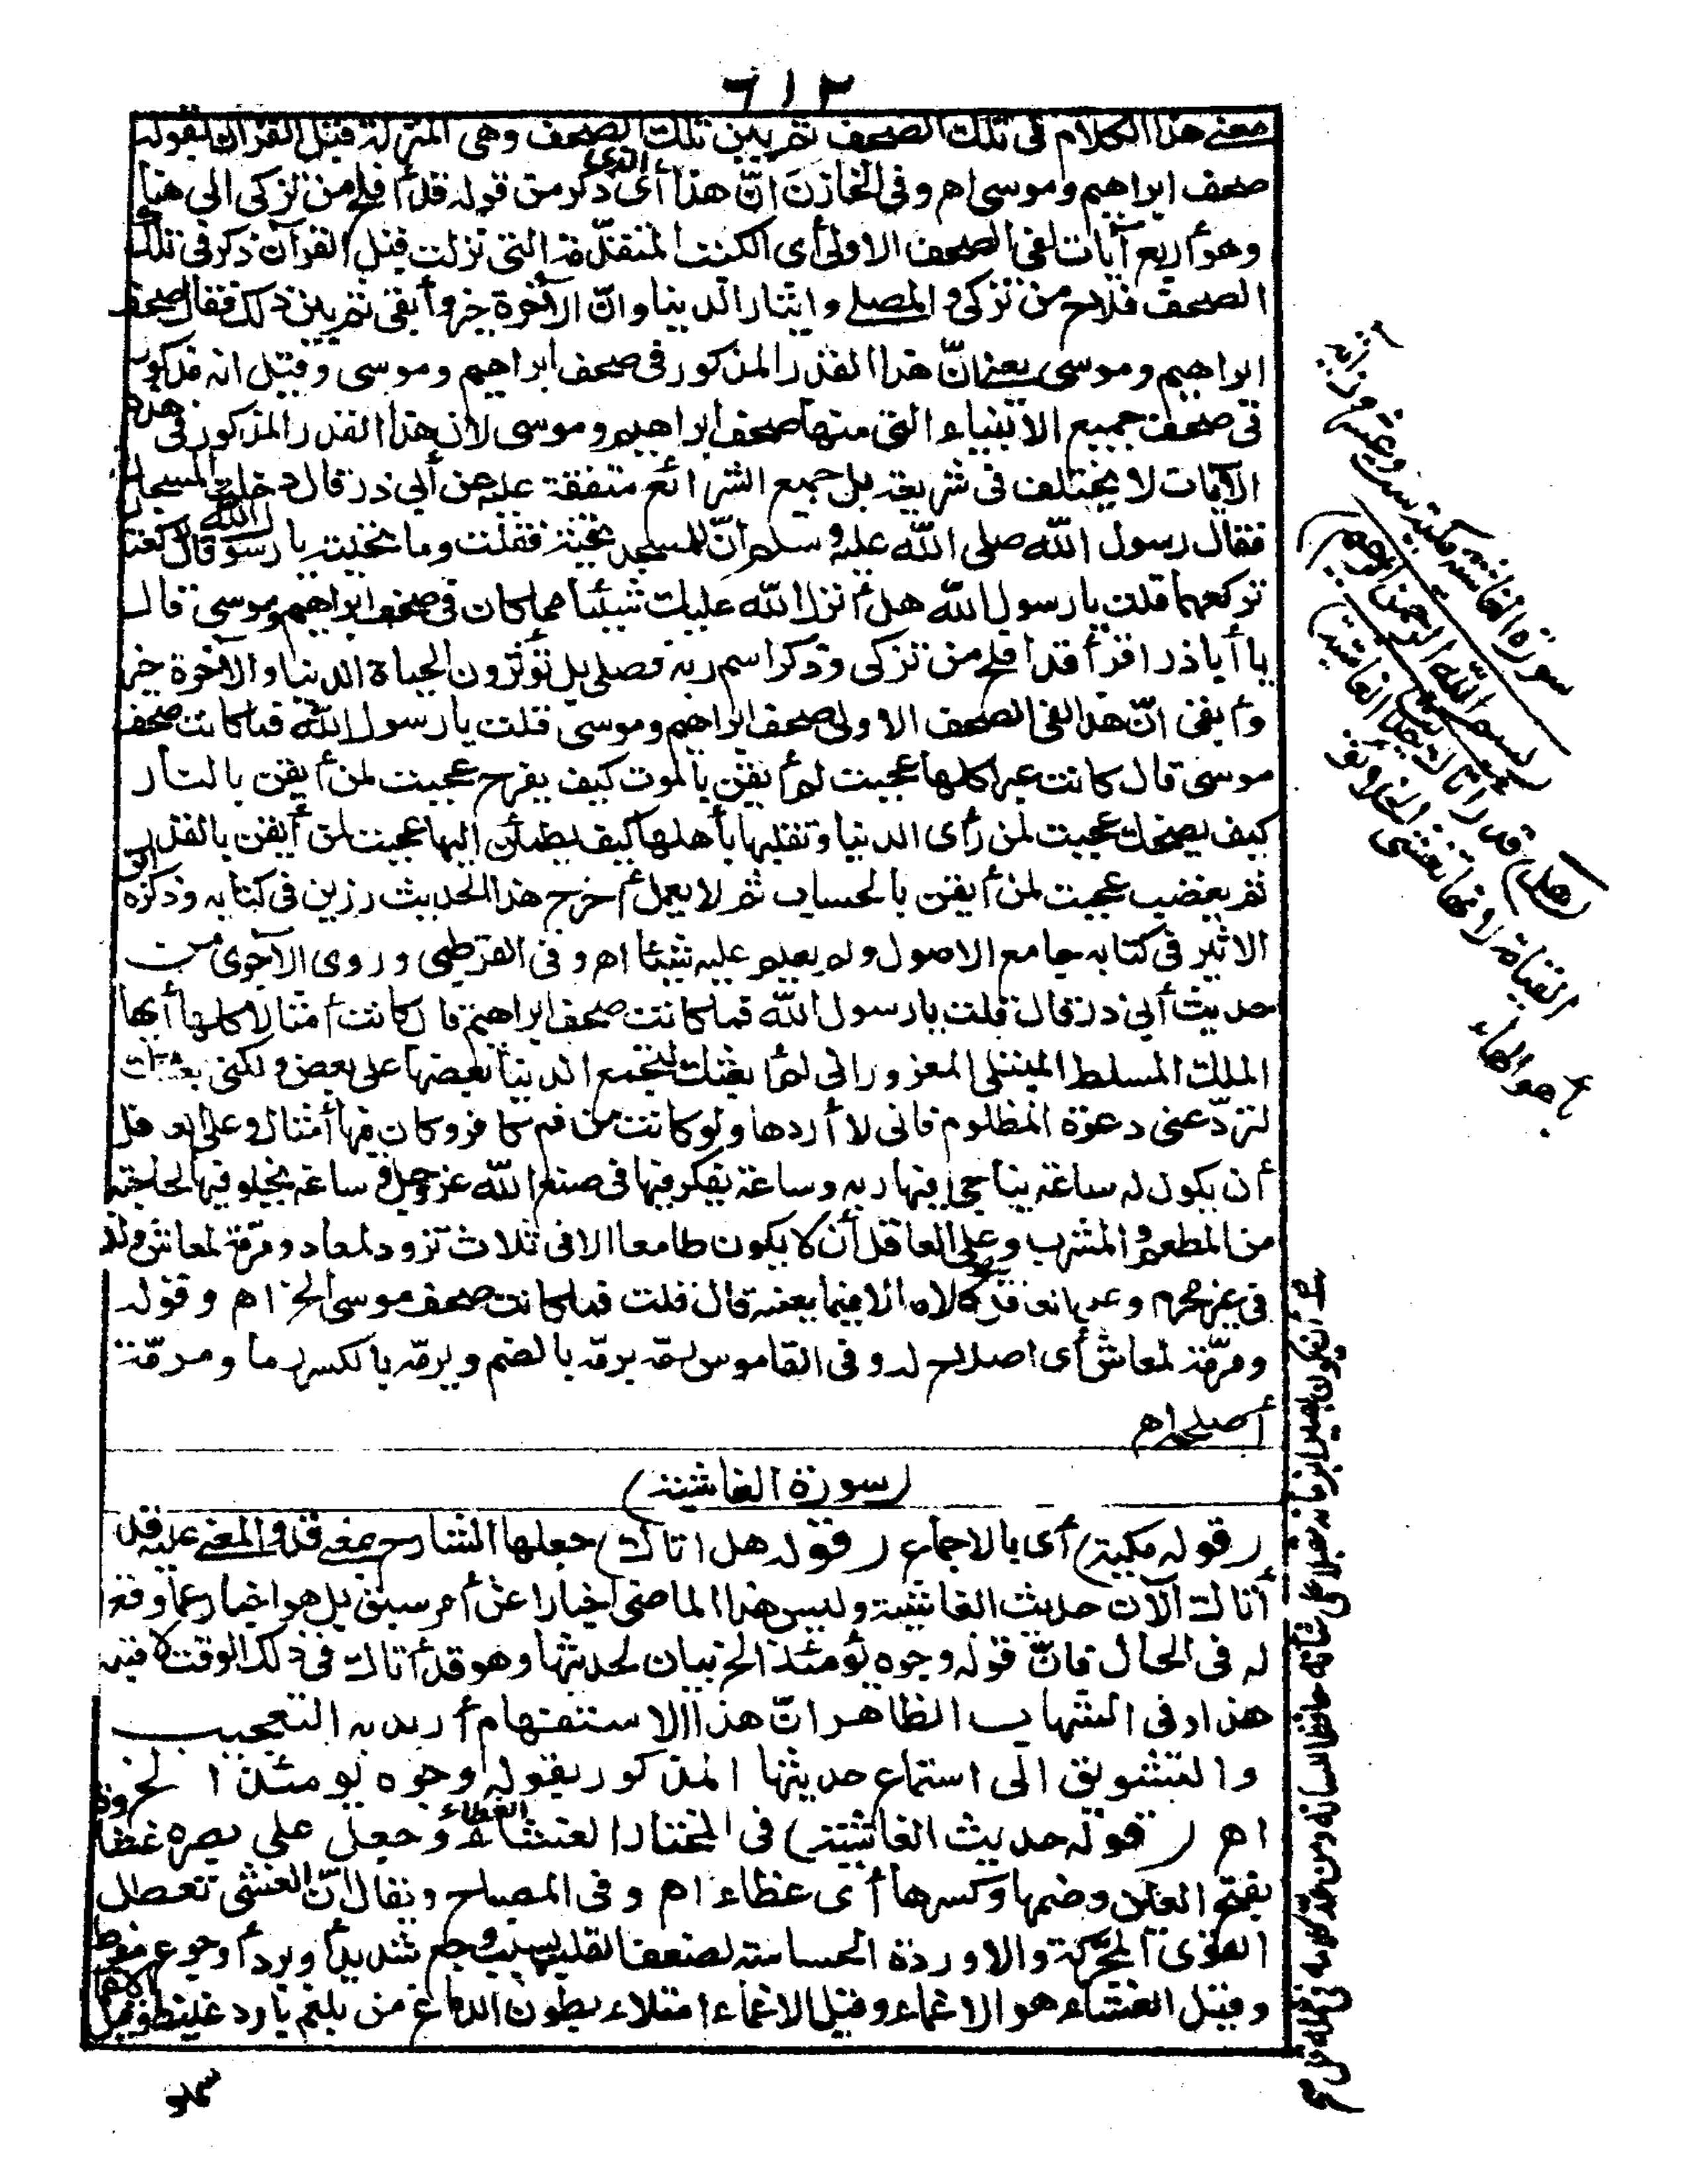 ٦١٢
معنى هذا الكلام فى تلك الصحف ثم بين تلك الصحف وهى المنزلة قبل القرآن بقوله
صحف ابراهيم وموسى اه وفى الخازن انّ هذا أى الذى ذكر من قوله قد أفلح من تزكى الى هنا
وهو أربع آيات لفى الصحف الاولى أى الكتب المتقدّمة التى نزلت قبل القرآن ذكر فى تلك
الصحف فلاح من تزكى والمصلى وايثار الدنيا وانّ الآخرة خير وأبقى ثم بين ذلك فقال صحف
ابراهيم وموسى يعنى انّ هذا القدر المذكور فى صحف ابراهيم وموسى وقيل انه مذكور
فى صحف جميع الانبياء التى منها صحف ابراهيم وموسى لان هذا القدر المذكور فى هذه
الآيات لا يختلف فى شريعة بل جميع الشرائع متفقة عليه عن أبى ذر قال دخلت المسجد
فقال رسول الله صلى الله عليه وسلم انّ للمسجد تحية فقلت وما تحيته يا رسول الله قال ركعتان
تركعهما قلت يا رسول الله هل أنزل الله عليك شيئا مما كان فى صحف ابراهيم وموسى قال
يا أبا ذر اقرأ قد أفلح من تزكى وذكر اسم ربه فصلى بل تؤثرون الحياة الدنيا والآخرة خير
وأبقى انّ هذا لفى الصحف الاولى صحف ابراهيم وموسى قلت يا رسول الله فما كانت صحف
موسى قال كانت عبرا كلها عجبت لمن أيقن بالموت كيف يفرح عجبت لمن أيقن بالنار
كيف يضحك عجبت لمن رأى الدنيا وتقلبها بأهلها كيف يطمئن اليها عجبت لمن أيقن بالقدر
ثم يغضب عجبت لمن أيقن بالحساب ثم لا يعمل أخرج هذا الحديث رزين فى كتابه وذكره ابن
الاثير فى كتابه جامع الاصول ولم يعلم عليه شيئا اه وفى القرطبى وروى الآجرى من
حديث أبى ذر قال قلت يا رسول الله فما كانت صحف ابراهيم قال كانت أمثالا كلها أيها
الملك المسلط المبتلى المغرور انى لم أبعثك لتجمع الدنيا بعضها على بعض ولكنى بعثتك
لترد عنى دعوة المظلوم فانى لا أردها ولو كانت من فم كافر وكان فيها أمثال وعلى العاقل
أن يكون له ساعة يناجى فيها ربه وساعة يفكر فيها فى صنع الله عز وجل وساعة يخلو فيها لحاجته
من المطعم والمشرب وعلى العاقل أن لا يكون طامعا الا فى ثلاث تزود لمعاد ومرمّة لمعاش ولذة
فى غير محرم وعد كلامه الا فيما يعنيه قال قلت فما كانت صحف موسى الخ اه وقوله
ومرمّة لمعاش أى اصلاح له وفى القاموس رمّه يرمّه بالضم ويرمّه بالكسر رما ومرمّة
أصلحه اه
(سورة الغاشية)
(قوله مكية) أى بالاجماع (قوله هل اتاك) جعلها الشارح بمعنى قد والمعنى عليه قد
أتاك الآن حديث الغاشية وليس هذا الماضى اخبارا عن أمر سبق بل هو اخبار عما وقع
له فى الحال فانّ قوله وجوه يومئذ الخ بيان لحديثها وهو قد أتاك فى ذلك الوقت لا قبله
هذا وفى الشهاب الظاهر انّ هذا الاستفهام أريد به التعجيب
والتشويق الى استماع حديثها المذكور بقوله وجوه يومئذ الخ
اه (قوله حديث الغاشية) فى المختار الغشاء الغطاء وجعل على بصره غشاوة
بفتح الغين وضمها وكسرها أى غطاء اه وفى المصباح ويقال انّ الغشى تعطل
القوى المحرّكة والاوردة الحساسة لضعف القلب بسبب وجع شديد أو برد أو جوع مفرط
وقيل الغشاء هو الاغماء وقيل الاغماء امتلاء بطون الدماغ من بلغم بارد غليظ وقيل الاغماء
سهو
سورة الغاشية مكية ست وعشرون آية
(بسم الله الرحمن الرحيم)
(هل) قد (أتاك حديث الغاشية)
القيامة لانها تغشى الخلائق
بأهوالها
أن يكون بصيرا بزمانه مقبلا على شأنه حافظا للسانه ومن عدّ كلامه من عمله قل